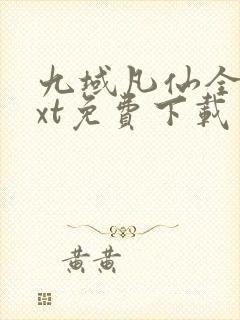 九域凡仙全
xt免費下載
黄黄